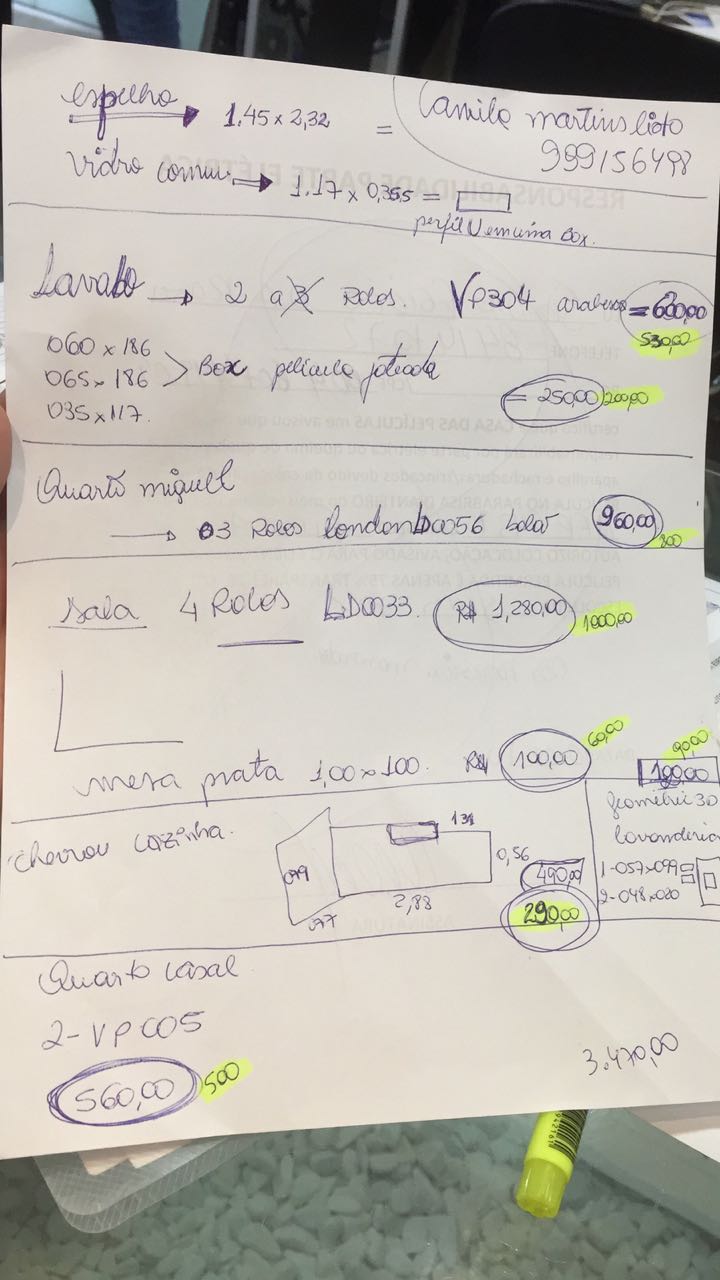 espelho → 1.45 x 2,32 =
Camila martins lioto
999156498
vidro comum → 1.17 x 0,355 =
perfil U em cima Box.
Lavabo → 2 a 3 Rolos. VP304 = 600,00
530,00
060 x 186
065 x 186 > Box película jateada
035 x 117.
= 250,00 200,00
Quarto miguel
→ 03 Rolos london LD0056 960,00
800
Sala 4 Rolos LD0033. R$ 1,280,00
1000,00
mesa prata 1,00 x 100. R$ 100,00
60,00
90,00
100,00
chevrou cozinha.
131
0,56
099
077
2,88
490,00
290,00
geometric 3D
lavanderia
1-057x099
2-048x020
Quarto casal
2-VPC05
560,00 500
3.470,00